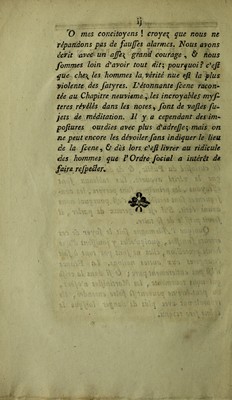 ij
O mes concitoyens ! croyez que nous ne
répandons pas de fausses alarmes. Nous avons
écrit avec un assez grand courage, & nous
sommes loin d'avoir tout dit; pourquoi? c'est
que chez les hommes la vérité nue est la plus
violente des satyres. L'étonnante scene racon-
tée au Chapitre neuvieme, les incroyables mys-
teres révélés dans les notes, sont de vastes su-
jets de méditation. Il y a cependant des im-
postures ourdies avec plus d'adresse, mais on
ne peut encore les dévoiler sans indiquer le lieu
de la scene, & dès lors c'est livrer au ridicule
des hommes que l'Ordre social a intérêt de
faire respecter.